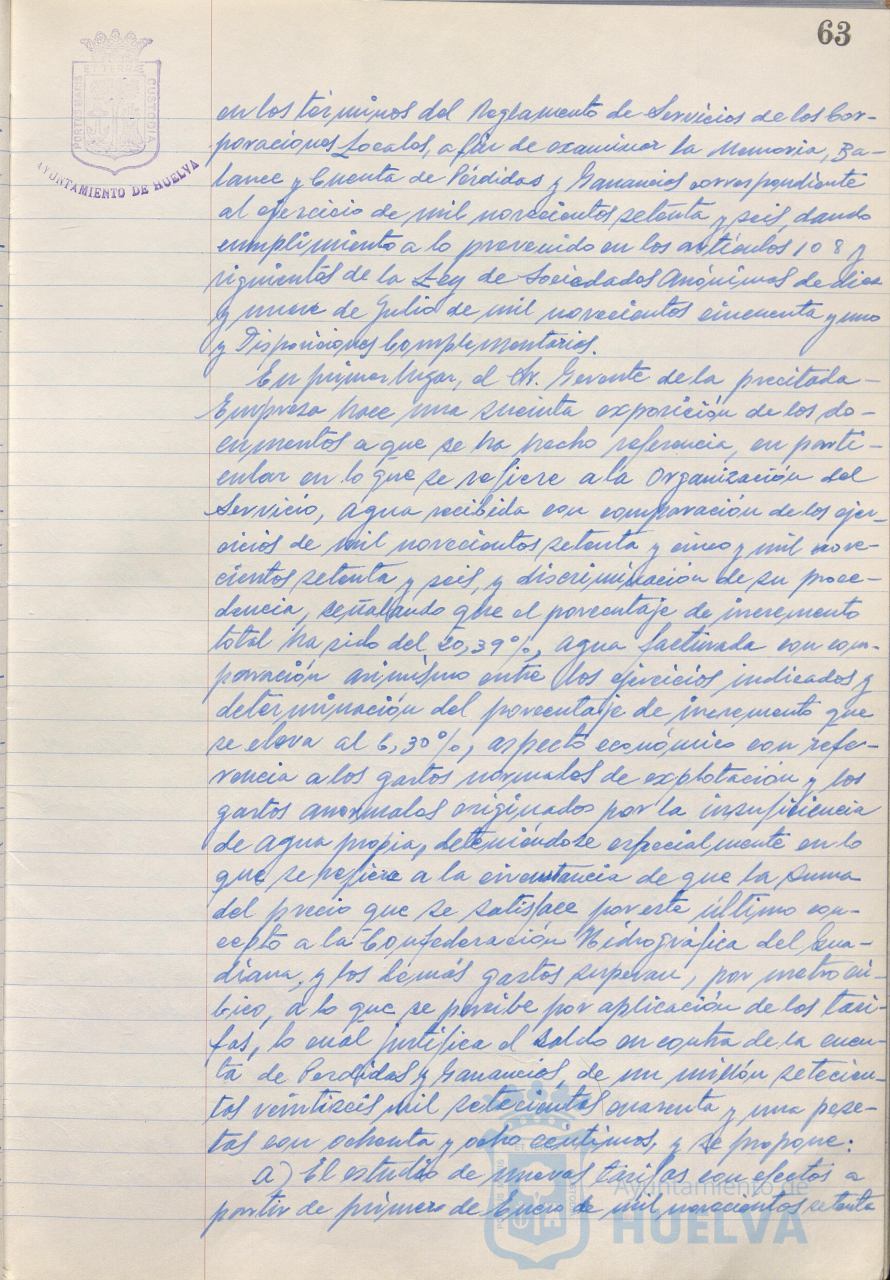 63
PORTUS MARIS ET TERRAE CUSTODIA
AYUNTAMIENTO DE HUELVA
en los términos del Reglamento de Servicios de las Cor-
poraciones Locales, a fin de examinar la Memoria, Ba-
lance y Cuenta de Pérdidas y Ganancias correspondiente
al ejercicio de mil novecientos setenta y seis, dando
cumplimiento a lo prevenido en los artículos 108 y
siguientes de la Ley de Sociedades Anónimas de diez
y nueve de Julio de mil novecientos cincuenta y uno
y Disposiciones Complementarias.
En primer lugar, el Sr. Gerente de la precitada
Empresa hace una sucinta exposición de los do-
cumentos a que se ha hecho referencia, en parti-
cular en lo que se refiere a la Organización del
Servicio, agua recibida con comparación de los ejer-
cicios de mil novecientos setenta y cinco y mil nove-
cientos setenta y seis, y discriminación de su proce-
dencia, señalando que el porcentaje de incremento
total ha sido del 20,39%, agua facturada con com-
paración asimismo entre los ejercicios indicados y
determinación del porcentaje de incremento que
se eleva al 6,30%, aspecto económico con refe-
rencia a los gastos normales de explotación y los
gastos anormales originados por la insuficiencia
de agua propia, deteniéndose especialmente en lo
que se refiere a la circunstancia de que la suma
del precio que se satisface por este último con-
cepto a la Confederación Hidrográfica del Gua-
diana, y los demás gastos superan, por metro cú-
bico, a lo que se percibe por aplicación de las tari-
fas, lo cuál justifica el saldo en contra de la cuen-
ta de Perdidas y Ganancias, de un millón setecien-
tas veintiseis mil setecientas cuarenta y una pese-
tas con ochenta y ocho centimos, y se propone:
a) El estudio de nuevas tarifas con efectos a
partir de primero de Enero de mil novecientos setenta
Ayuntamiento de
HUELVA